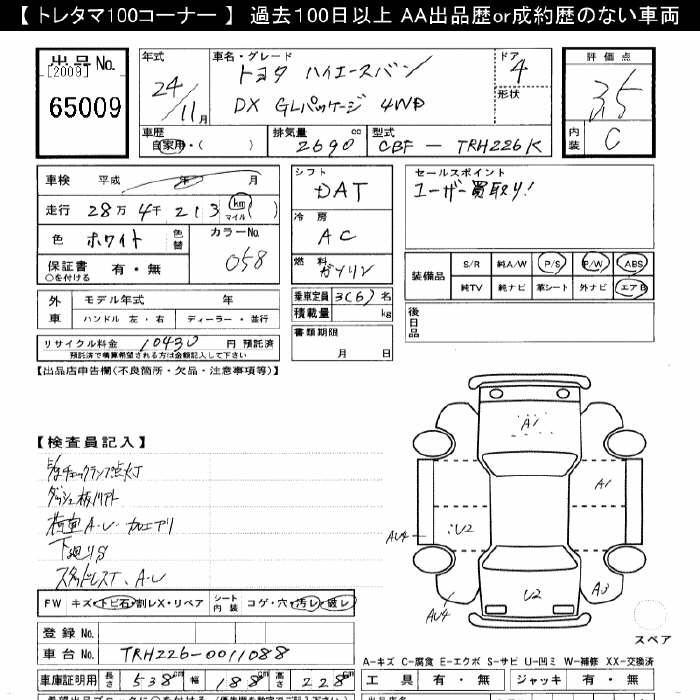 【 トレタマ100コーナー 】 過去100日以上 AA出品歴or成約歴のない車両
出品 No.
[2009]
65009
年式
24/11月
車名・グレード
トヨタ ハイエースバン
DX GLパッケージ 4WD
ドア
4
形状
評価点
3.5
内装
C
車歴
自家用・( )
排気量
2690 cc
型式
CBF - TRH226K
車検 平成 年 月
走行 28万 4千 213 km マイル ( )
色 ホワイト 色替
カラーNo.
058
保証書 ○を付ける 有・無
シフト
DAT
冷房
AC
燃料
ガソリン
乗車定員 3(6) 名
積載量 kg
書類期限
月 日
セールスポイント
ユーザー買取り!
装備品
S/R 純A/W P/S P/W ABS
純TV 純ナビ 革シート 外ナビ エアB
後日品
外車
モデル年式 年
ハンドル 左・右 ディーラー・並行
リサイクル料金 10430 円 預託済
預託済で精算希望される方は金額記入して下さい
【出品店申告欄(不良箇所・欠品・注意事項等)】
【検査員記入】
チェックランプ点灯
A・U
下廻りS
スタッドレスT、A・U
A1
A1
U2
AU4
AU4
U2
A3
スペア
FW キズ・トビ石・割レX・リペア シート内装 コゲ・穴・汚レ・破レ
登録 No.
車台 No. TRH226-0011088
車庫証明用 長さ 538cm 幅 188cm 高さ 228cm
A-キズ C-腐食 E-エクボ S-サビ U-凹ミ W-補修 XX-交換済
工具 有・無 ジャッキ 有・無